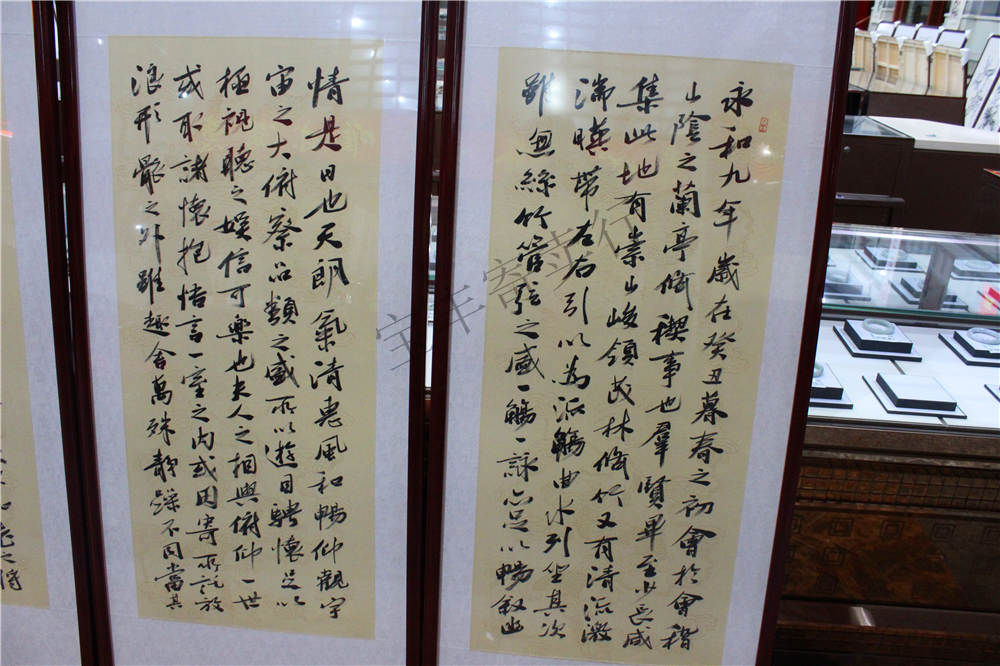 永和九年歲在癸丑暮春之初會於會稽
山陰之蘭亭脩稧事也羣賢畢至少長咸
集此地有崇山峻領茂林脩竹又有清流激
湍暎帶左右引以為流觴曲水列坐其次
雖無絲竹管弦之盛一觴一詠亦足以暢敘幽
情是日也天朗氣清惠風和暢仰觀宇
宙之大俯察品類之盛所以遊目騁懷足以
極視聽之娛信可樂也夫人之相與俯仰一世
或取諸懷抱悟言一室之內或因寄所託放
浪形骸之外雖趣舍萬殊靜躁不同當其
宝丰寄卖行